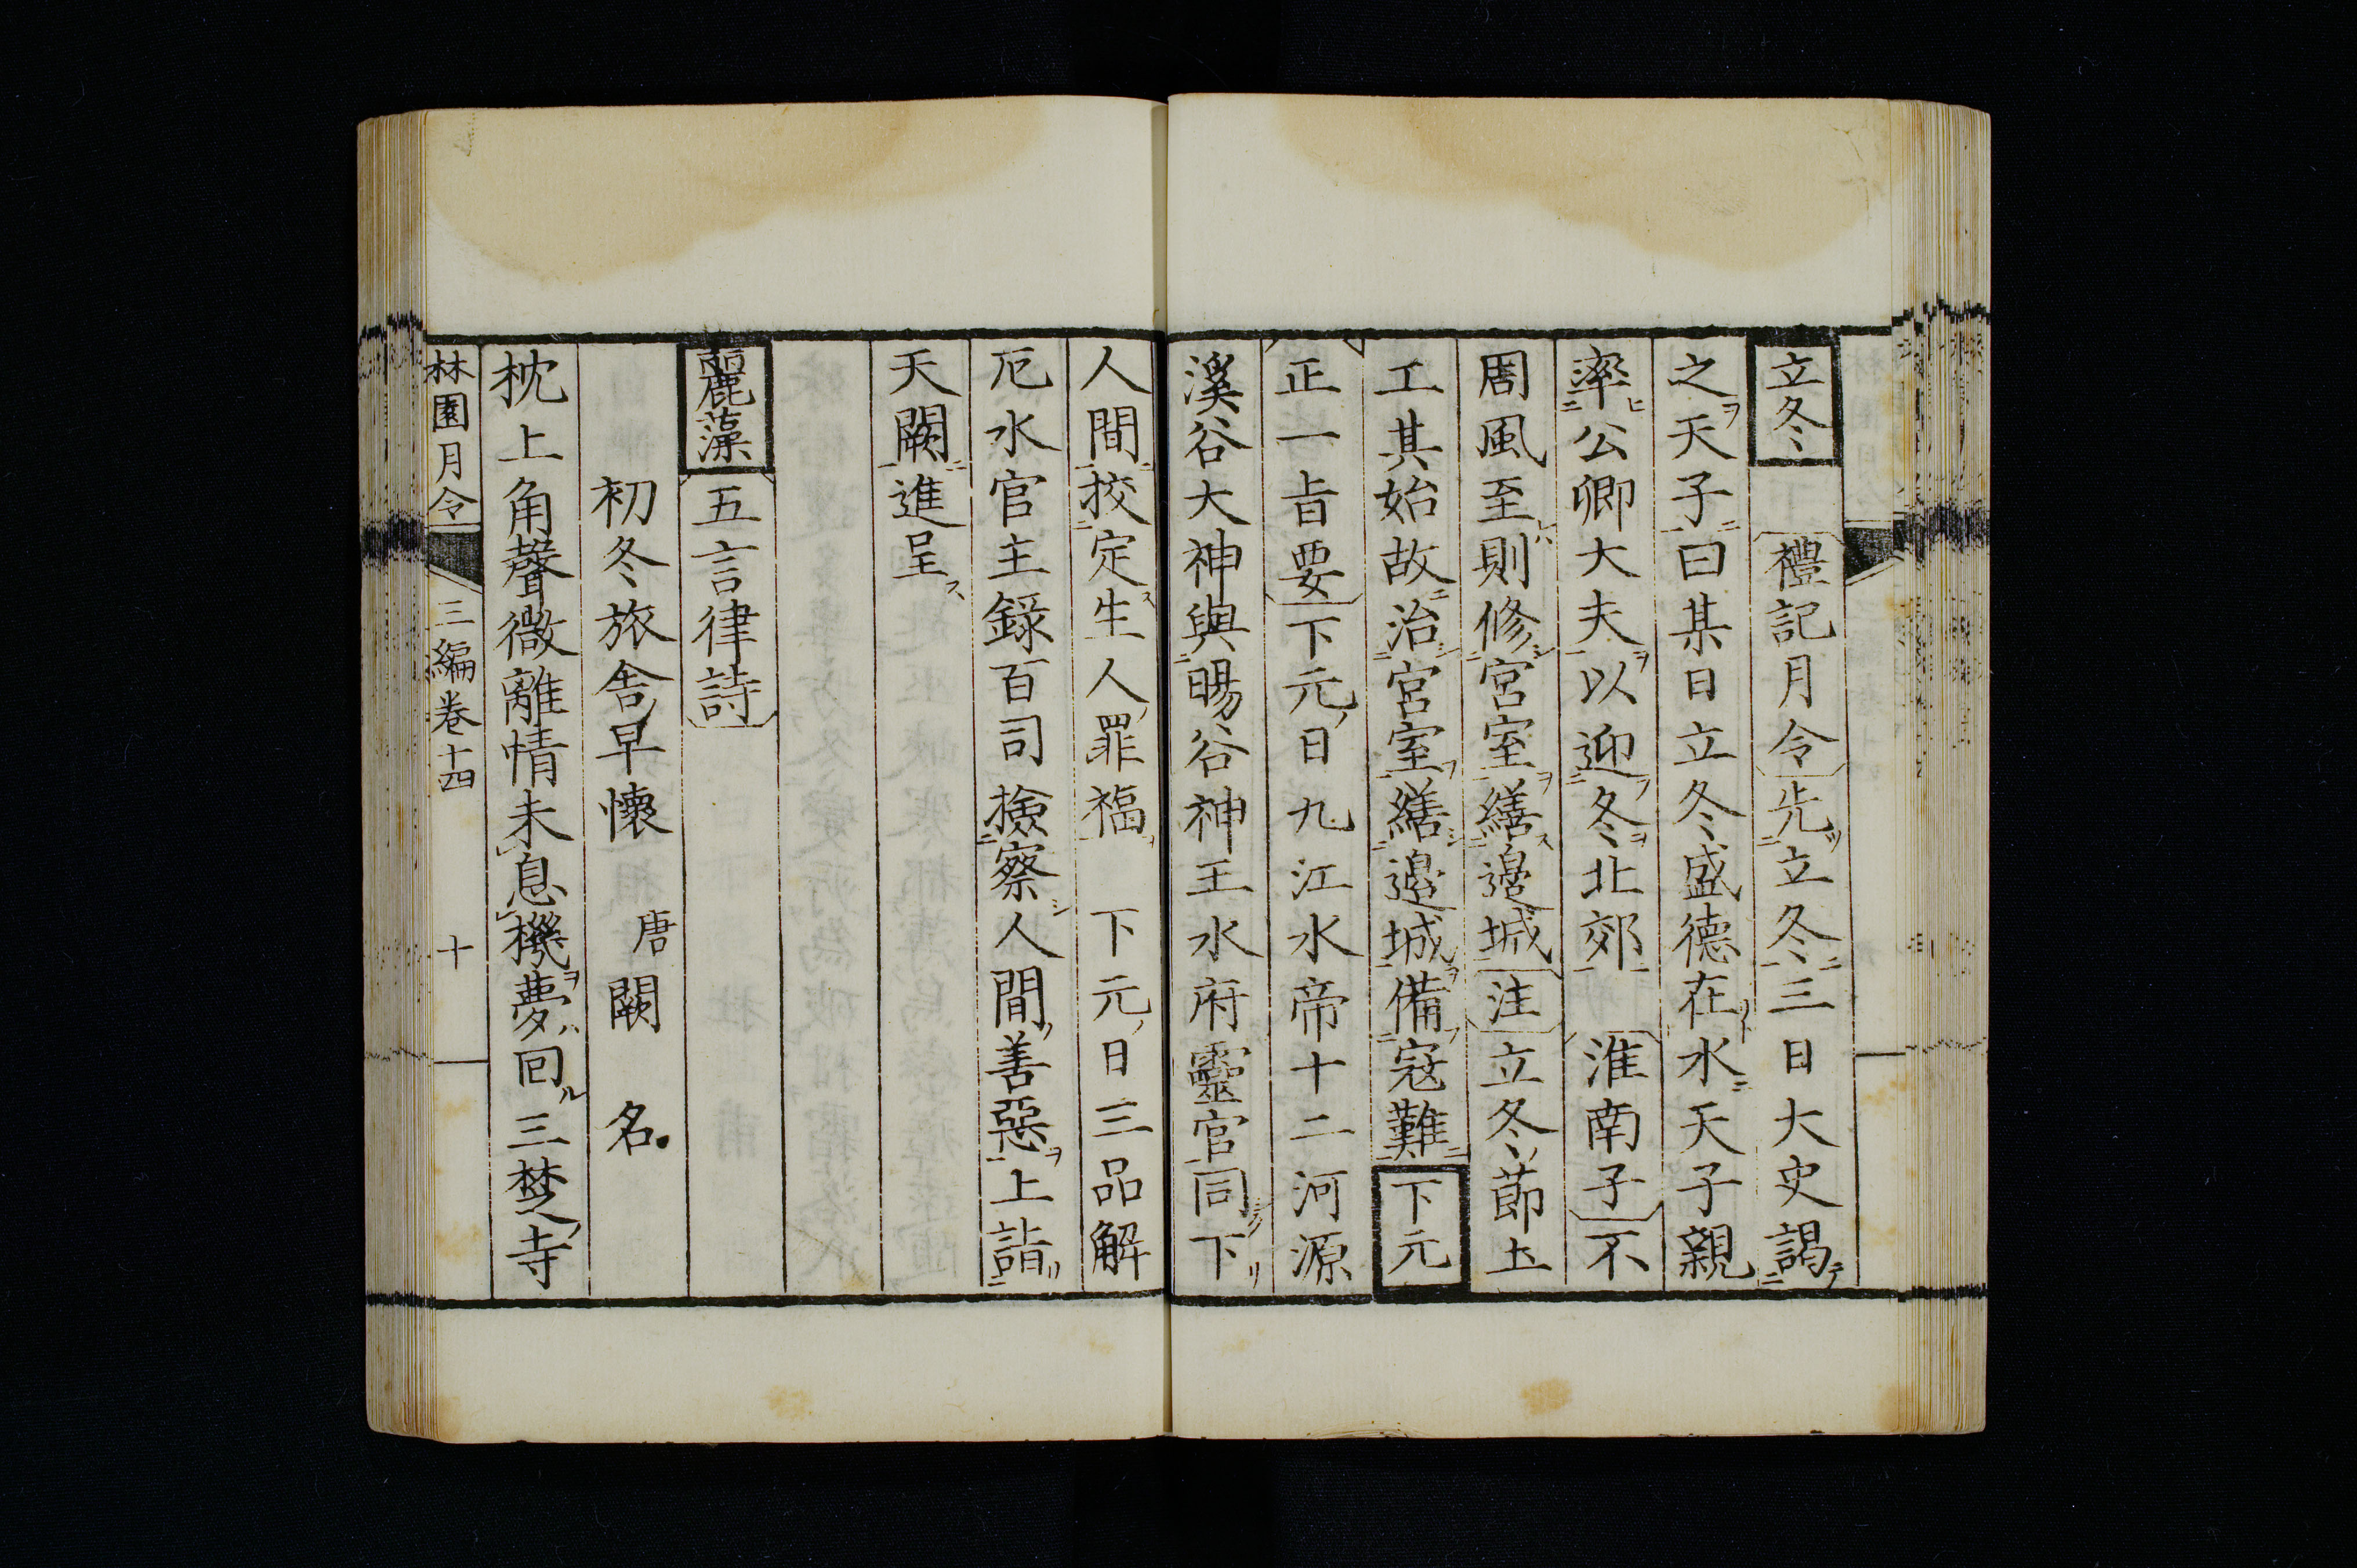 立冬 禮記月令先立冬三日大史謁
之天子曰某日立冬盛德在水天子親
率公卿大夫以迎冬北郊 淮南子不
周風至則修宮室繕邊城注立冬節土
工其始故治宮室繕邊城備寇難下元
正一旨要下元日九江水帝十二河源
溪谷大神與暘谷神王水府靈官同下
人間挍定生人罪福 下元日三品解
厄水官主錄百司撿察人間善惡上詣
天闕進呈
麗藻 五言律詩
初冬旅舍早懷 唐 闕名
枕上角聲微離情未息機夢回三楚寺
林園月令 三編卷十四 十